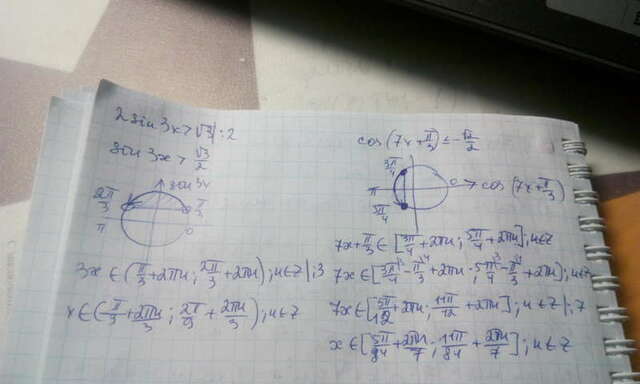 2 sin 3x > √3 |: 2
sin 3x > √3/2
sin 3x
2π/3 π/3
π 0
3x ∈ (π/3 + 2πn; 2π/3 + 2πn); n∈Z |: 3
x ∈ (π/3 + 2πn/3; 2π/9 + 2πn/3); n∈Z
cos (7x + π/3) ≤ -√2/2
3π/4
π 0 cos (7x + π/3)
5π/4
7x + π/3 ∈ [3π/4 + 2πn; 5π/4 + 2πn]; n∈Z
7x ∈ [3π/4 - π/3 + 2πn; 5π/4 - π/3 + 2πn]; n∈Z
7x ∈ [5π/12 + 2πn; 11π/12 + 2πn]; n∈Z |: 7
x ∈ [5π/84 + 2πn/7; 11π/84 + 2πn/7]; n∈Z